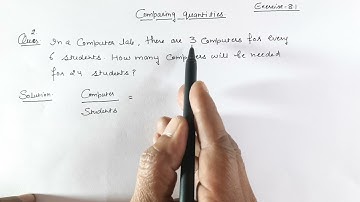 Comparing Quantities
Exercise - 8.1
Ques 2. In a Computer lab, there are 3 Computers for every
6 students. How many Computers will be needed
for 24 students?
Solution Computer =
Students